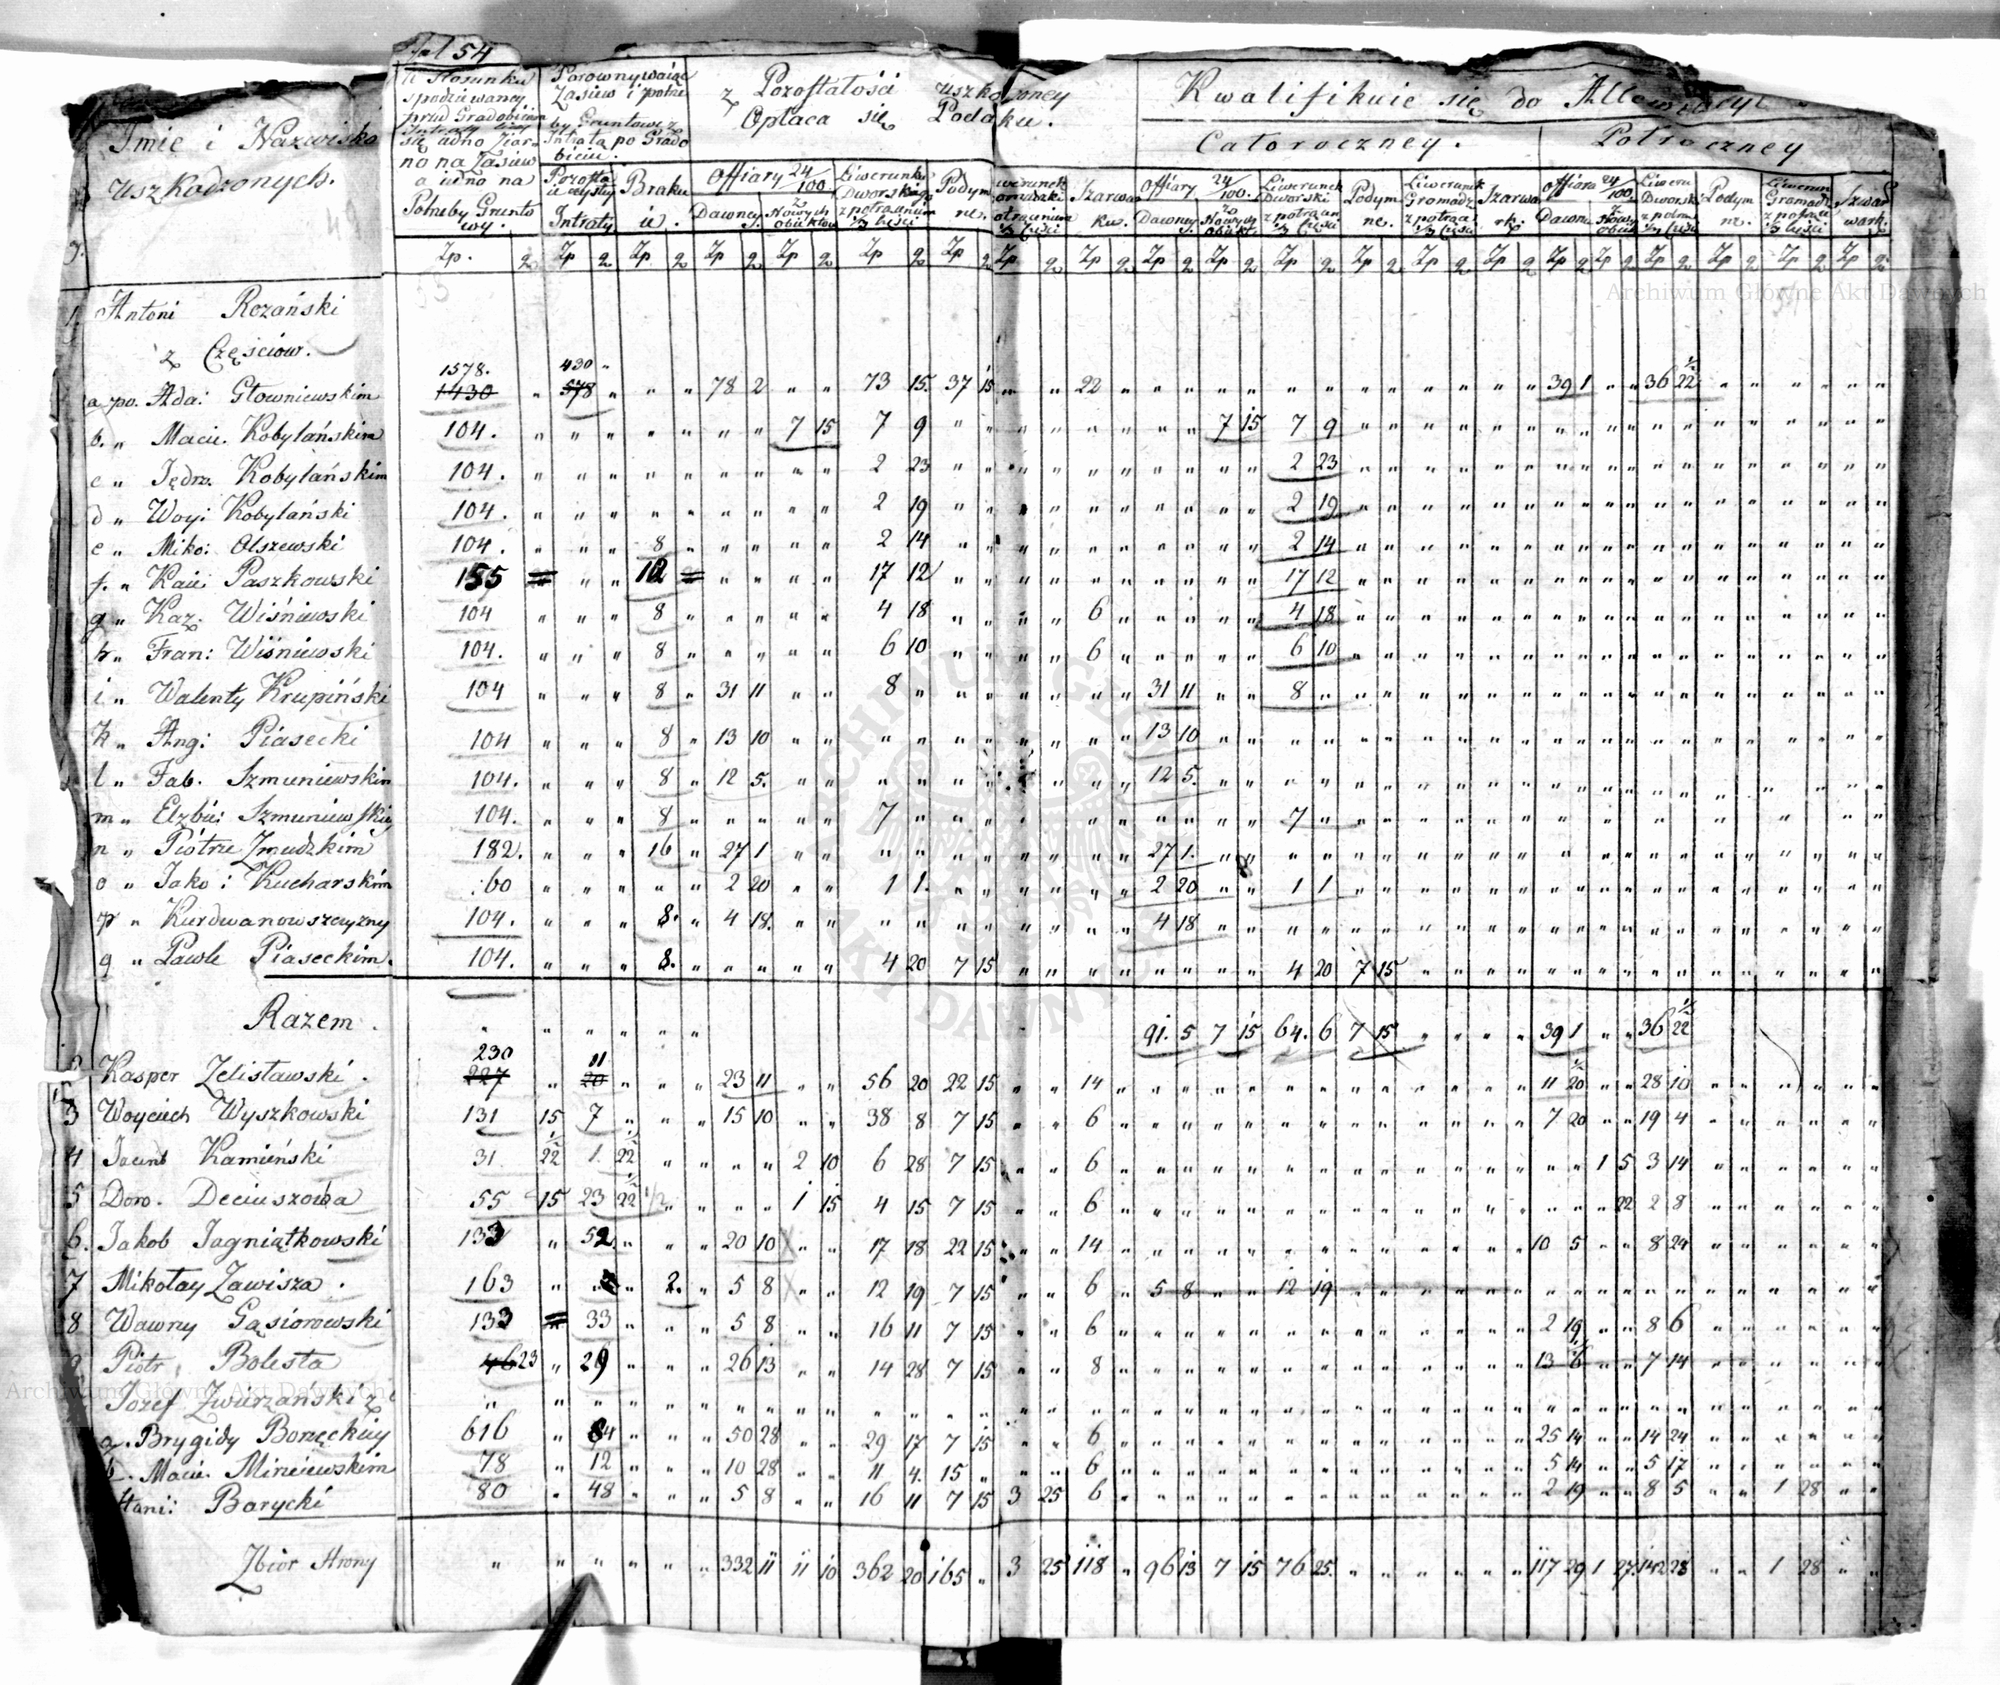 54
Imie i Nazwisko
Uszkodzonych.
W stosunku
spodziewaney
przed Gradobiciem
Intraty
no na Zasiew
a iedno na
Potrzeby Grunto
wy.
Porownywaiąc
Zasiew i potrze
by Gruntowe z
Intratą po Grado
biciu.
Pozosta
ie czysty
Intraty
Braku
ie.
z Pozostałości Uszkodzoney
Opłaca się Podatku.
Offiary 24/100
Dawney
z Nowych obiektów
Liwerunku
Dworskiego
z potrąceniem
1/3 części
Podym
ne.
Szarwar
ku.
Kwalifikuie się do Allewiacyi
Całoroczney.
Połroczney
Offiary 24/100.
Dawney
z Nowych obiekt.
Liwerunek
Dworski
z potrąc
1/3 Części
Podym
ne.
Liwerunek
Gromadz
z potrąc
1/3 Części
Szarwa
rk.
Offiara 24/100
Dawna
Liweru
Dworski
Podym
ne.
Liwerun
Gromadz
Szwar
wark.
Zp. g Zp g Zp g Zp g Zp g Zp g Zp g Zp g Zp g Zp g Zp g Zp g Zp g Zp g Zp g Zp g Zp g Zp g Zp g Zp g Zp g
1. Antoni Rozański
z Częsciow.
1578. 430 "
a po. Ada: Głowniewskim 1430 " 578 " " " 78 2 " " 73 15. 37 15 " " 22 39 1 " " 36 22 1/2
b. " Maciei Kobylańskim 104. 7 15 7 9 7 15 7 9
c " Jędrz. Kobylańskim 104. 2 23 2 23
d " Woy: Kobylański 104. 2 19 2 19
e " Miko: Olszewski 104. 8 2 14 2 14
f. " Kaie: Paszkowski 155 12 17 12 17 12
g " Kaz. Wiśniewski 104 8 4 18 6 4 18
h " Fran: Wiśniewski 104. 8 6 10 6 6 10
i " Walenty Krupiński 104 8 31 11 8 31 11 8
k " Ang: Piasecki 104 8 13 10 13 10
l " Fab. Szmuniewskim 104. 8 12 5. 12 5.
m " Elzbie: Szmuniewskiey 104. 8 7 7
n " Piótrze Zmudzkim 182. 16 27 1 27 1.
o " Jako: Kucharskim 60 2 20 1 1. 2 20 1 1
p " Kurdwanowszczyzny 104. 8. 4 18. 4 18
q " Pawle Piaseckim. 104. 8. 4 20 7 15 4 20 7 15
Razem. 91. 5 7 15 64. 6 7 15 39 1 36 22 1/2
230 11
2 Kasper Zelisławski. 227 20 23 11 56 20 22 15 14 11 20 1/2 28 10
3 Woyciech Wyszkowski 131 15 7 15 10 38 8 7 15 6 7 20 19 4
4 Jacent Kamiński 31 22 1/2 1 22 1/2 2 10 6 28 7 15 6 1 5 3 14
5 Doro. Deciuszowa 55 15 23 22 1/2 1/2 1 15 4 15 7 15 6 22 2 8
6. Jakob Jagniątkowski 133 52. 20 10 17 18 22 15 14 10 5 8 24
7 Mikołay Zawisza. 163 2. 5 8 12 19 7 15 6 5 8 12 19
8 Wawrny Gąsiorowski 133 33 5 8 16 11 7 15 6 2 19 8 6
Piotr Bolesta 46 23 29 26 13 14 28 7 15 8 13 6 1/2 7 14
Jozef Zwierzański z
a. Brygidy Borzęckiey 616 84 50 28 29 17 7 15 6 25 14 14 24
b. Macie. Mirciewskim 78 12 10 28 11 4. 15 " 6 5 14 5 17
Stani: Barycki 80 48 5 8 16 11 7 15 3 25 6 2 19 8 5 1 28
Zbior Strony 332 11 11 10 362 20 165 " 3 25 118 " 96 13 7 15 76 25. 117 29 1 27 142 28 1 28
Archiwum Główne Akt Dawnych
Archiwum Główne Akt Dawnych
ARCHIWUM GŁÓWNE AKT DAWNYCH